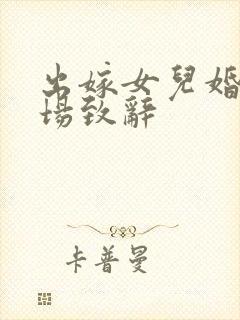 出嫁女兒婚
場致辭
卡普曼